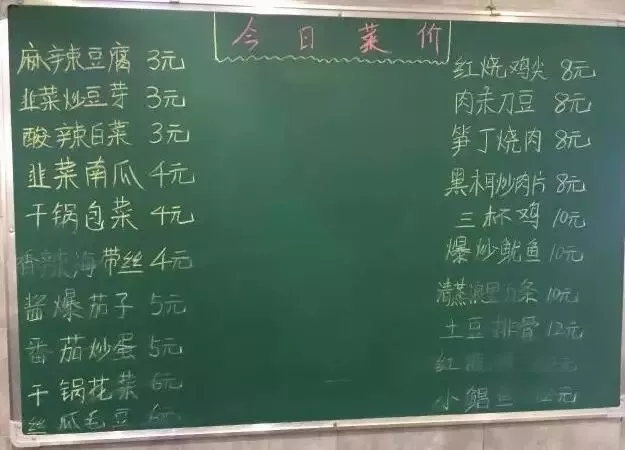 今日菜价
麻辣豆腐 3元
韭菜炒豆芽 3元
酸辣白菜 3元
韭菜南瓜 4元
干锅包菜 4元
香辣海带丝 4元
酱爆茄子 5元
番茄炒蛋 5元
干锅花菜 6元
丝瓜毛豆 6元
红烧鸡尖 8元
肉末刀豆 8元
笋丁烧肉 8元
黑木耳炒肉片 8元
三杯鸡 10元
爆炒鱿鱼 10元
清蒸浪里白条 10元
土豆排骨 12元
红
小鲳 元